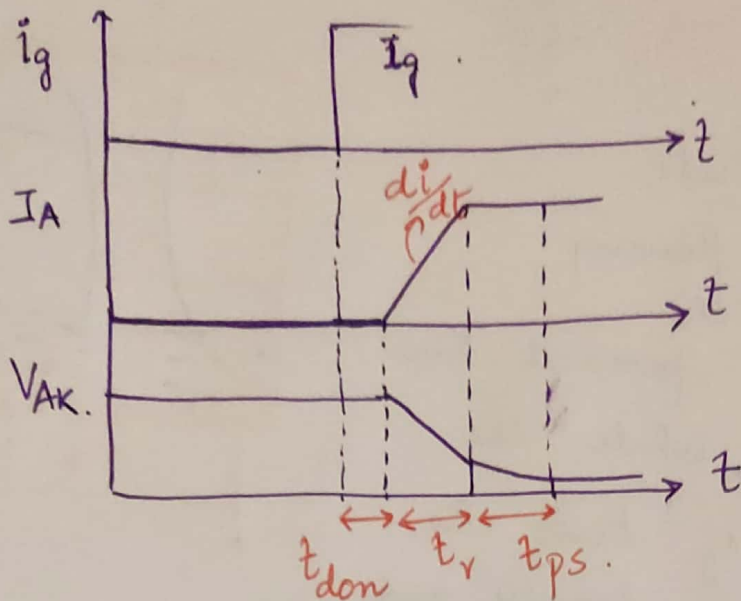 ig
Ig .
t
IA
di/dt
t
VAK.
t
tdon
tr
tps.